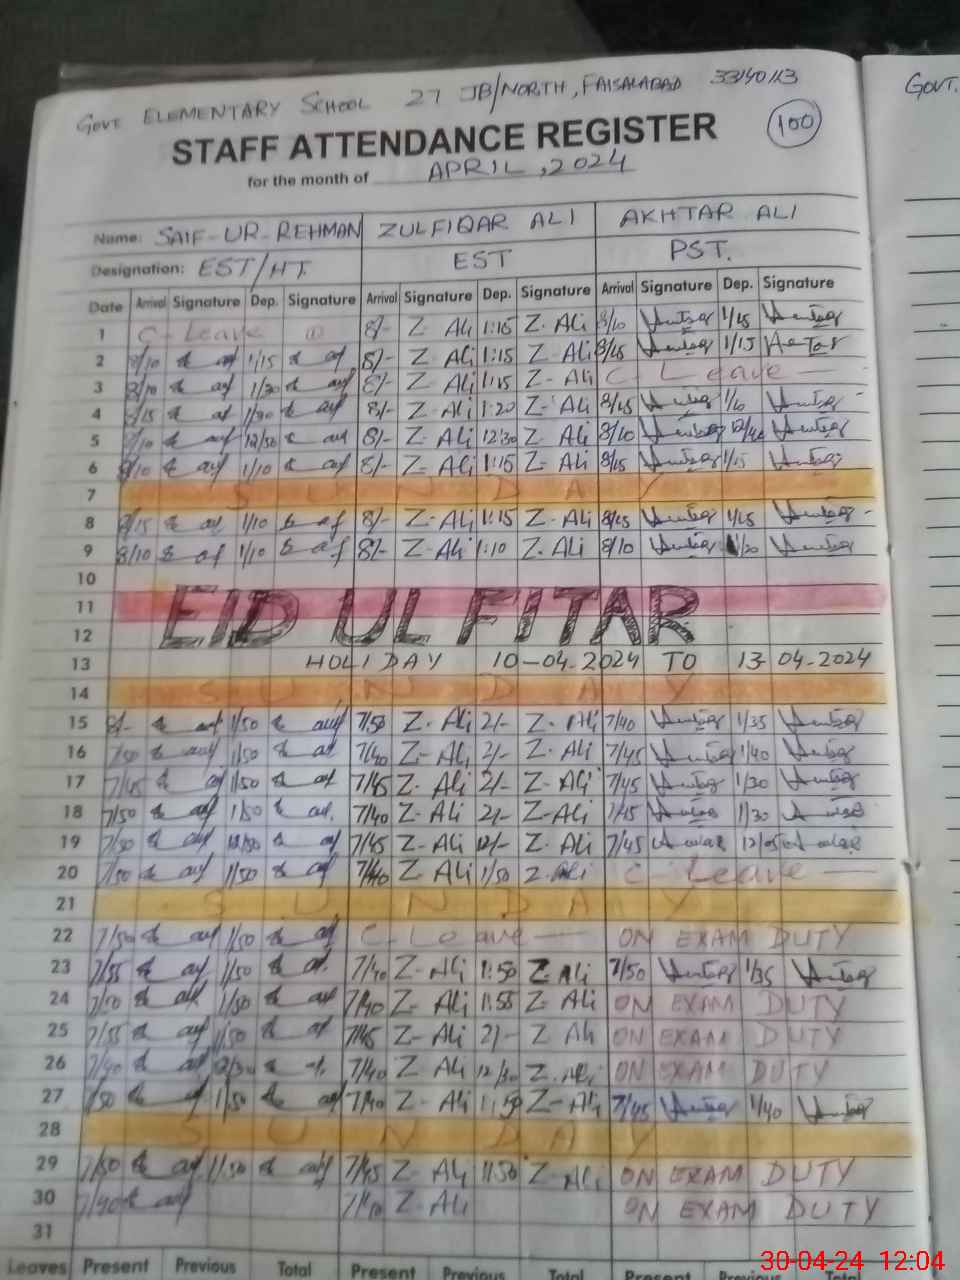 GOVT ELEMENTARY SCHOOL 27 JB/NORTH, FAISALABAD 33140113
GOVT.
STAFF ATTENDANCE REGISTER 100
for the month of APRIL, 2024
Name: SAIF-UR-REHMAN ZULFIQAR ALI AKHTAR ALI
Designation: EST/HT. EST PST.
Date Arrival Signature Dep. Signature Arrival Signature Dep. Signature Arrival Signature Dep. Signature
1 C-Leave 8/- Z-Ali 1:15 Z-Ali 8/10 1/15
2 8/10 1/15 8/- Z-Ali 1:15 Z-Ali 8/15 1/15
3 8/10 1/20 8/- Z-Ali 1:15 Z-Ali C-Leave
4 8/15 8/- Z-Ali 1:20 Z-Ali 8/15
5 8/10 12/30 8/- Z-Ali 12:30 Z-Ali 8/10
6 8/10 1/10 8/- Z-Ali 1:15 Z-Ali 8/15 1/15
7 SUNDAY
8 8/15 1/10 8/- Z-Ali 1:15 Z-Ali 8/15 1/15
9 8/10 1/10 8/- Z-Ali 1:10 Z-Ali 8/10 1/20
10
11 EID UL FITAR
12
13 HOLIDAY 10-04-2024 TO 13-04-2024
14 SUNDAY
15 8/- 1/50 7/50 Z-Ali 2/- Z-Ali 7/40 1/35
16 7/50 1/50 7/40 Z-Ali 2/- Z-Ali 7/45 1/40
17 7/45 1/50 7/45 Z-Ali 2/- Z-Ali 7/45 1/30
18 7/50 1/50 7/40 Z-Ali 2/- Z-Ali 7/45 1/30
19 7/50 12/50 7/45 Z-Ali 12/- Z-Ali 7/45 12/05
20 7/50 1/50 7/40 Z-Ali 1/50 Z-Ali C-Leave
21 SUNDAY
22 7/50 1/50 C-Leave ON EXAM DUTY
23 7/55 1/50 7/40 Z-Ali 1:50 Z-Ali 7/50 1/35
24 7/50 1/50 7/40 Z-Ali 1:55 Z-Ali ON EXAM DUTY
25 7/55 1/50 7/45 Z-Ali 2/- Z-Ali ON EXAM DUTY
26 7/40 12/30 7/40 Z-Ali 12/30 Z-Ali ON EXAM DUTY
27 7/50 1/50 7/40 Z-Ali 1:50 Z-Ali 7/45 1/40
28 SUNDAY
29 7/50 1/50 7/45 Z-Ali 1:50 Z-Ali ON EXAM DUTY
30 7/40 7/40 Z-Ali ON EXAM DUTY
31
Leaves Present Previous Total Present Previous Total Present Previous Total
30-04-24 12:04